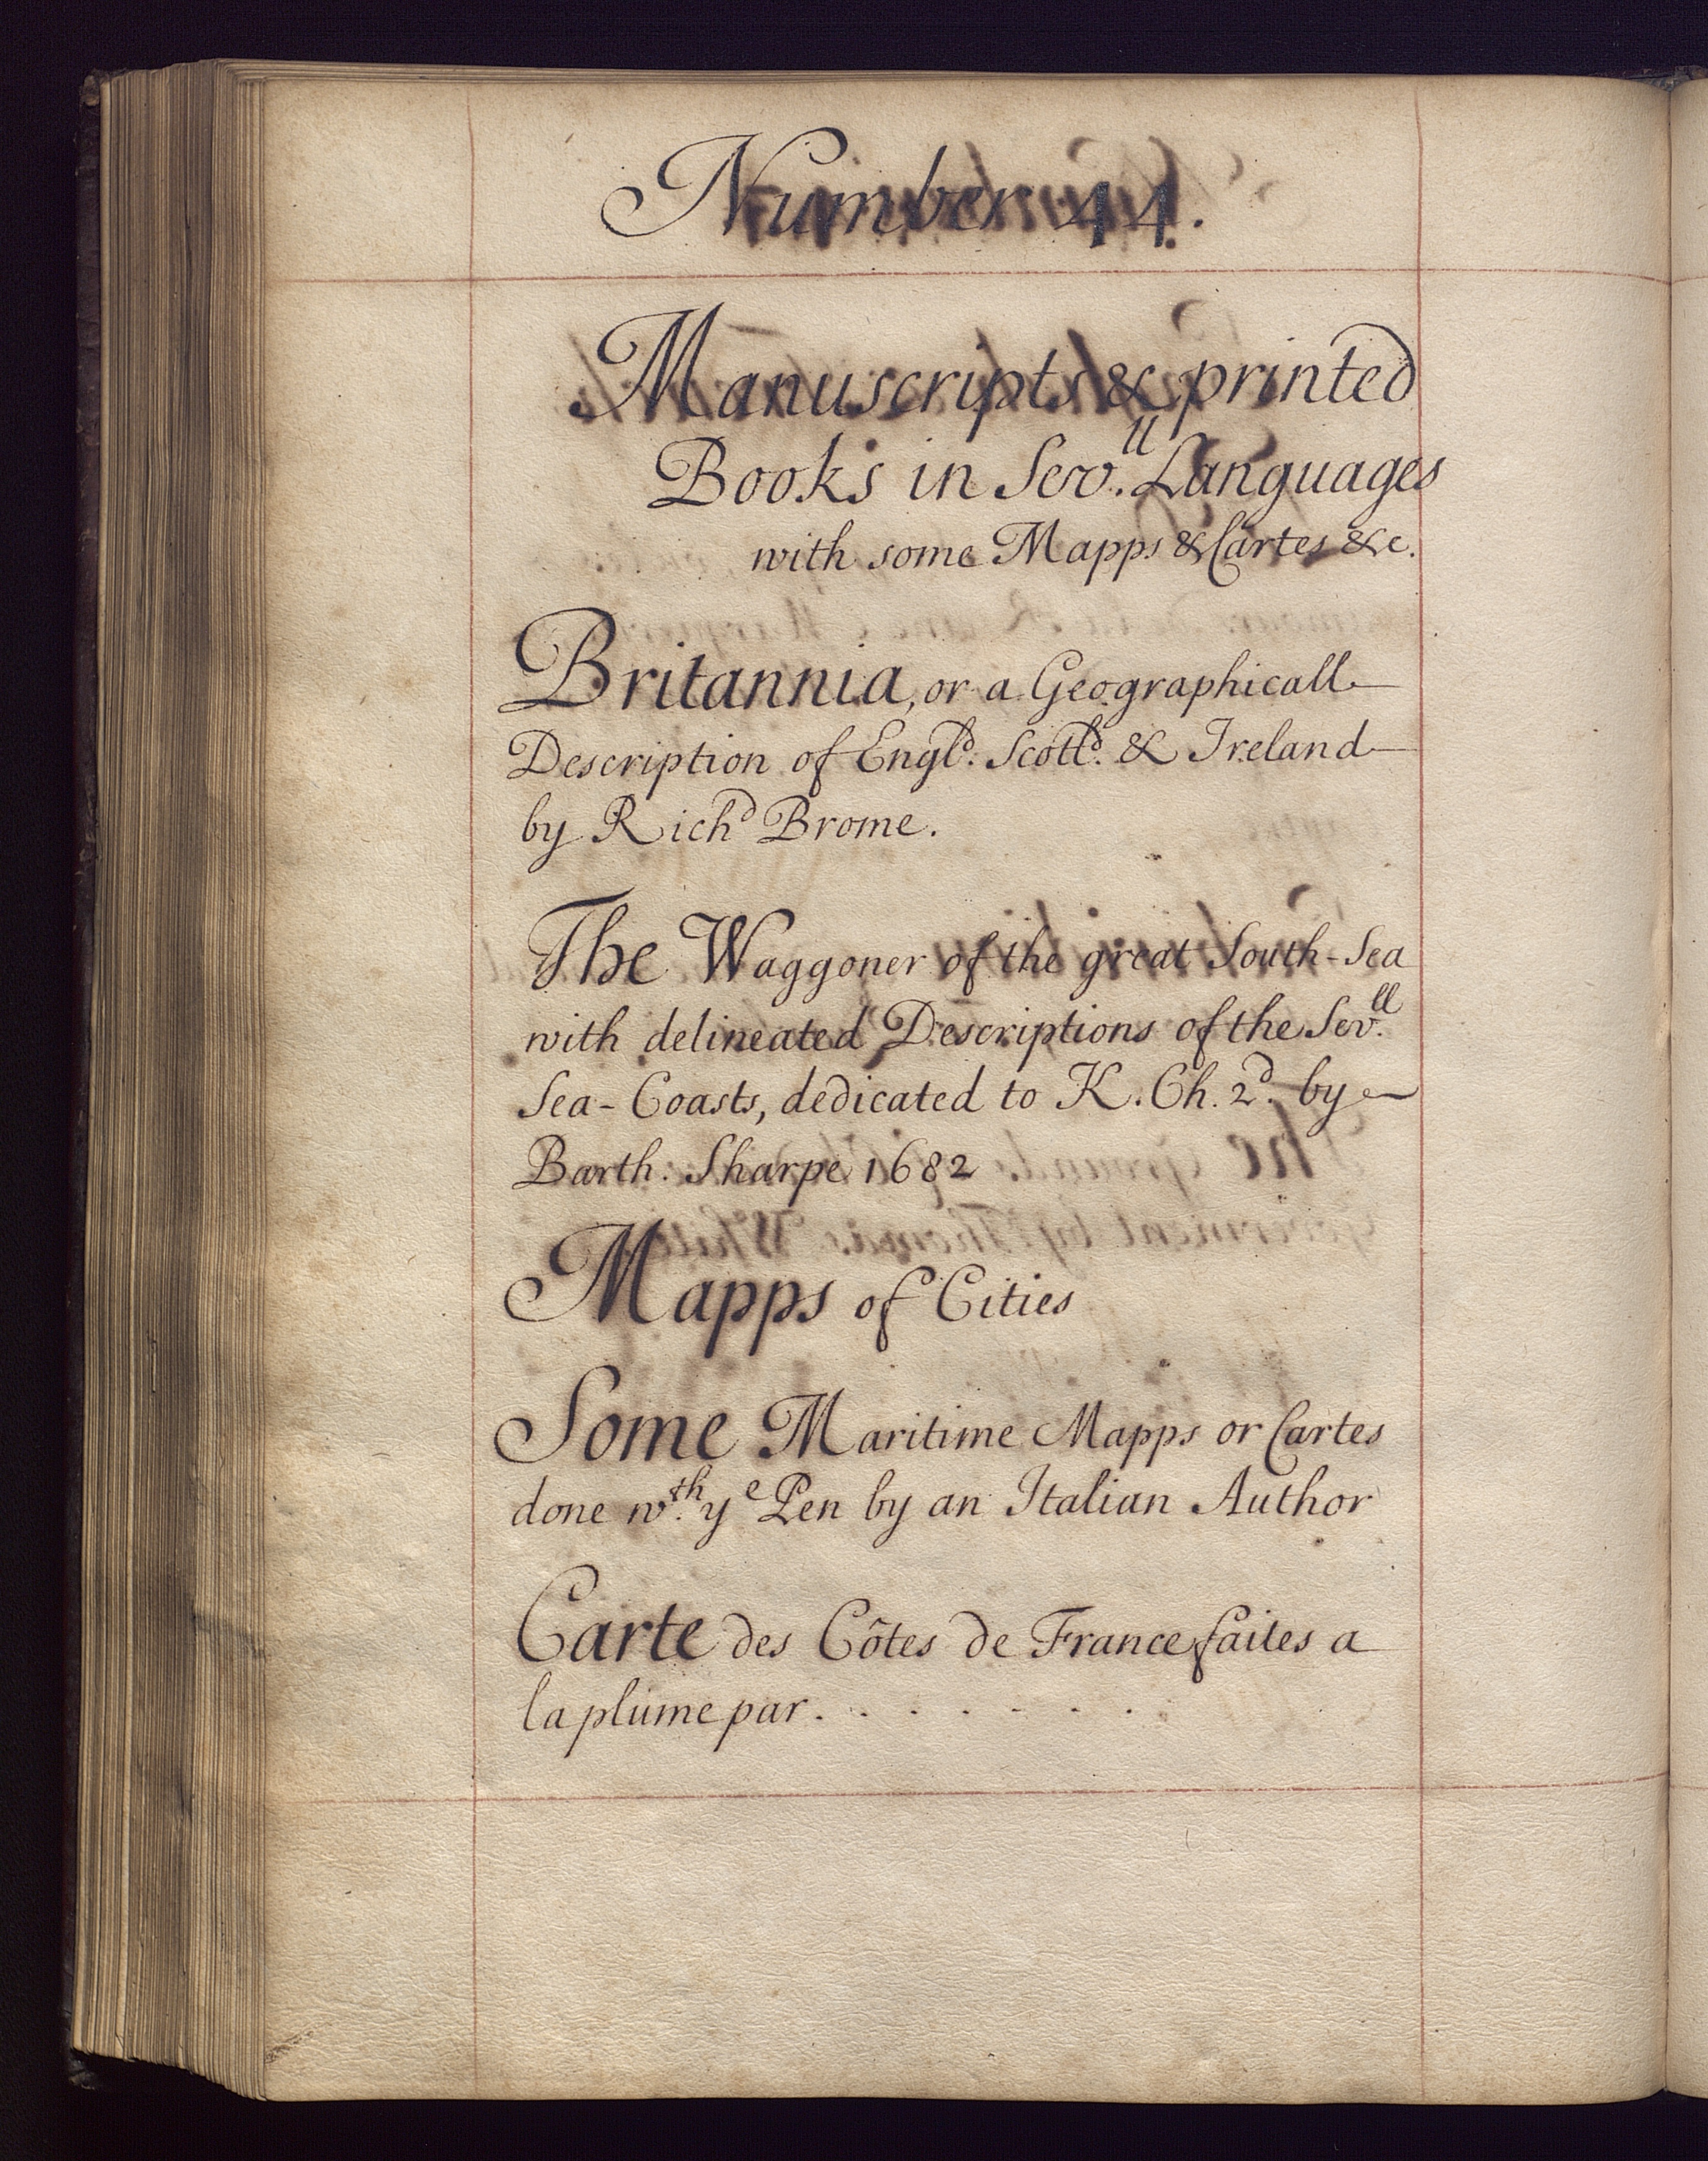 Number 44.
Manuscripts & printed
Books in Sev.ll Languages
with some Mapps & Cartes &c.
Britannia, or a Geographicall
Description of Engl.d Scotl.d & Ireland
by Rich.d Brome.
The Waggoner of the great South-Sea
with delineated Descriptions of the Sev.ll
Sea-Coasts, dedicated to K. Ch. 2.d by
Barth. Sharpe 1682
Mapps of Cities
Some Maritime Mapps or Cartes
done w.th ye Pen by an Italian Author
Carte des Côtes de France faites a
la plume par. . . . . . . .